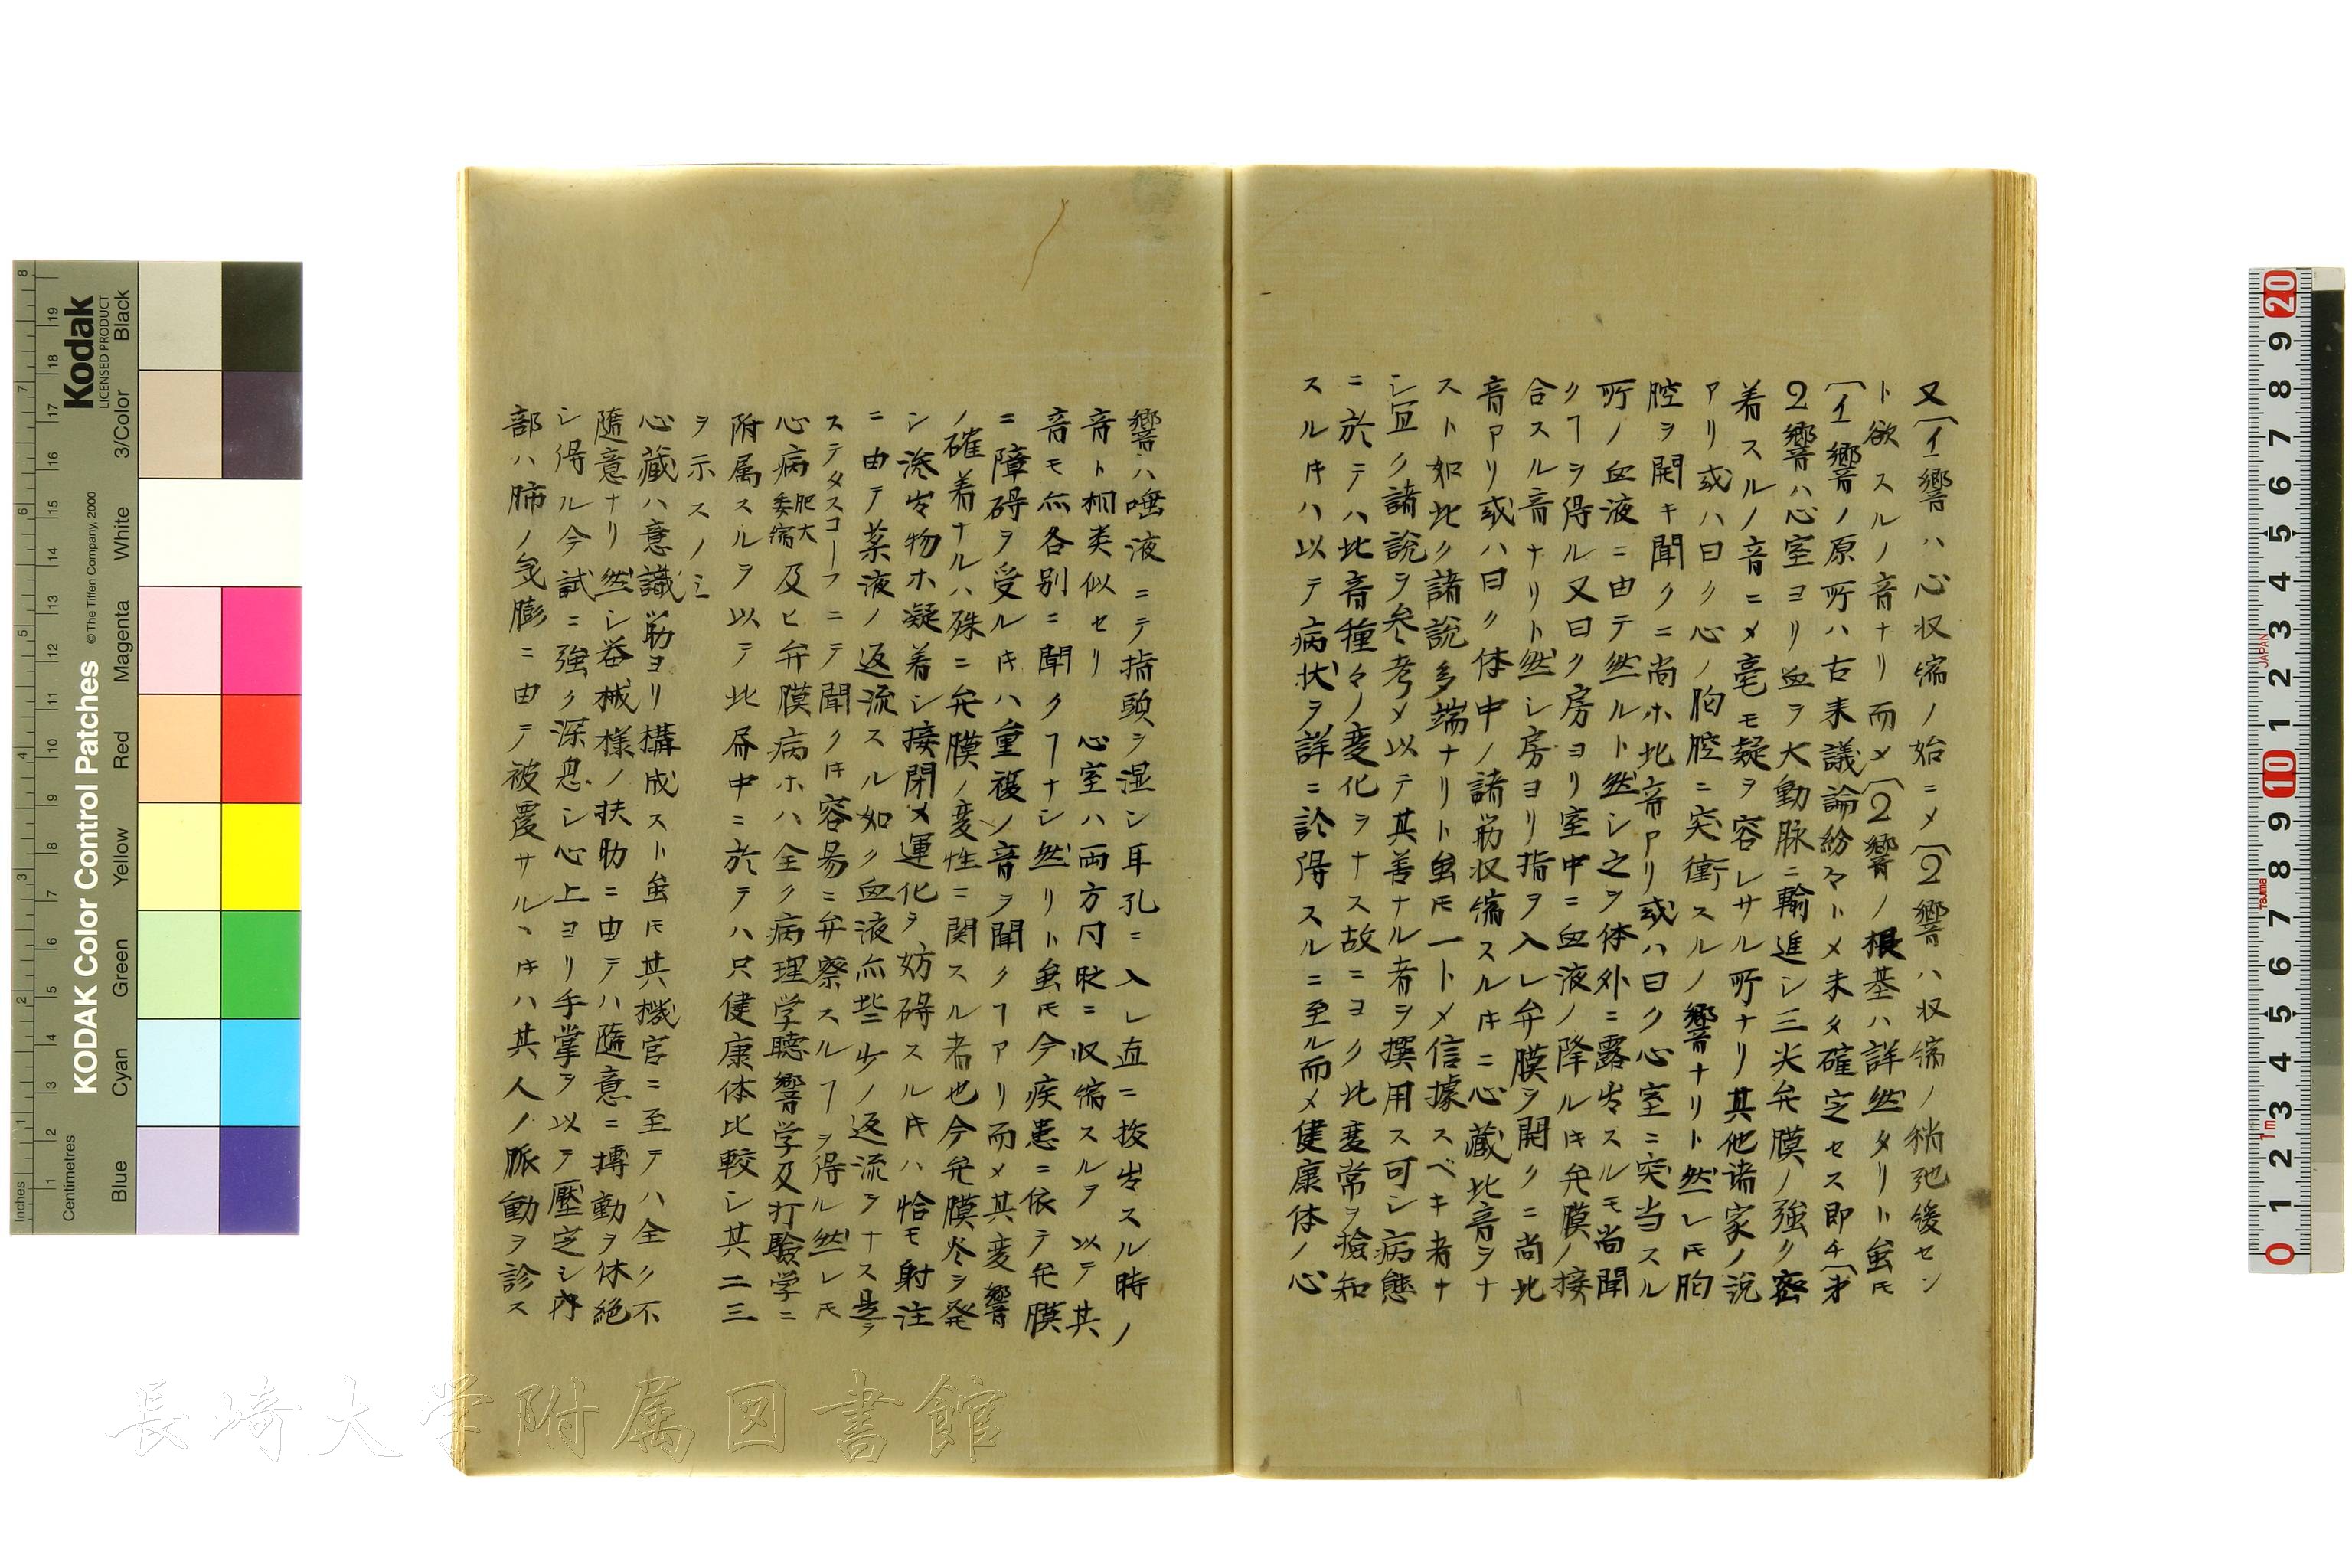 又〔イ響ハ心収縮ノ始ニメ〔2響ハ収縮ノ稍弛緩セン
ト欲スルノ音ナリ而メ〔2響ノ根基ハ詳然タリト虽モ
〔イ響ノ原所ハ古来議論紛々トメ未タ確定セス即チ〔才
2響ハ心室ヨリ血ヲ大動脉ニ輸進シ三尖弁膜ノ強ク密
着スルノ音ニメ毫モ疑ヲ容レサル所ナリ其他诸家ノ説
アリ或ハ曰ク心ノ胸腔ニ突衝スルノ響ナリト然レ𪜈胸
腔ヲ開キ聞クニ尚ホ此音アリ或ハ曰ク心室ニ突当スル
所ノ血液ニ由テ然ルト然シ之ヲ体外ニ露出スルモ尚聞
クヿヲ得ル又曰ク房ヨリ室中ニ血液ノ降ル𪜈弁膜ノ接
合スル音ナリト然シ房ヨリ指ヲ入レ弁膜ヲ開クニ尚此
音アリ或ハ曰ク体中ノ諸筋収縮スル𪜈ニ心藏此音ヲナ
スト如此ク諸説多端ナリト虽𪜈一トメ信據スベキ者ナ
シ宜ク諸説ヲ参考メ以テ其善ナル者ヲ撰用ス可シ病態
ニ於テハ此音種々ノ変化ヲナス故ニヨク此変常ヲ撿知
スル𪜈ハ以テ病状ヲ詳ニ診得スルニ至ル而メ健康体ノ心
響ハ唾液ニテ指頭ヲ湿シ耳孔ニ入レ直ニ抜出スル時ノ
音ト相类似セリ 心室ハ両方同時ニ収縮スルヲ以テ其
音モ亦各别ニ聞クヿナシ然リト虽𪜈今疾患ニ依テ弁膜
ニ障碍ヲ受ル𪜈ハ重複ノ音ヲ聞クヿアリ而メ其変響
ノ確着ナルハ殊ニ弁膜ノ変性ニ関スル者也今弁膜炎ヲ発
シ滲出物ホ凝着シ接閉メ運化ヲ妨碍スル𪜈ハ恰モ射注
ニ由テ薬液ノ返流スル如ク血液亦些少ノ返流ヲナス是ヲ
ステタスコーフニテ聞ク𪜈容易ニ弁察スルヿヲ得ル然レ𪜈
心病肥大委縮及ヒ弁膜病ホハ全ク病理学聴響学及打驗学ニ
附属スルヲ以テ此扁中ニ於テハ只健康体比較シ其二三
ヲ示スノミ
心藏ハ意識筋ヨリ構成スト虽𪜈其機官ニ至テハ全ク不
隨意ナリ然シ器械様ノ扶助ニ由テハ隨意ニ搏動ヲ休絶
シ得ル今試ニ強ク深息シ心上ヨリ手掌ヲ以テ壓定シ内
部ハ肺ノ気膨ニ由テ被覆サルヽ𪜈ハ其人ノ脈動ヲ診ス
長崎大学附属図書館
Kodak
LICENSED PRODUCT
KODAK Color Control Patches
© The Tiffen Company, 2000
Inches
Centimetres
Blue Cyan Green Yellow Red Magenta White 3/Color Black
JAPAN
TAJIMA